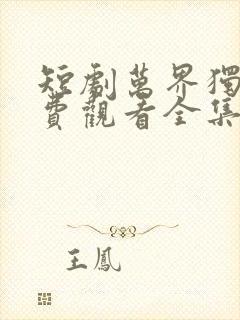 短劇萬界獨
費觀看全集
王鳳